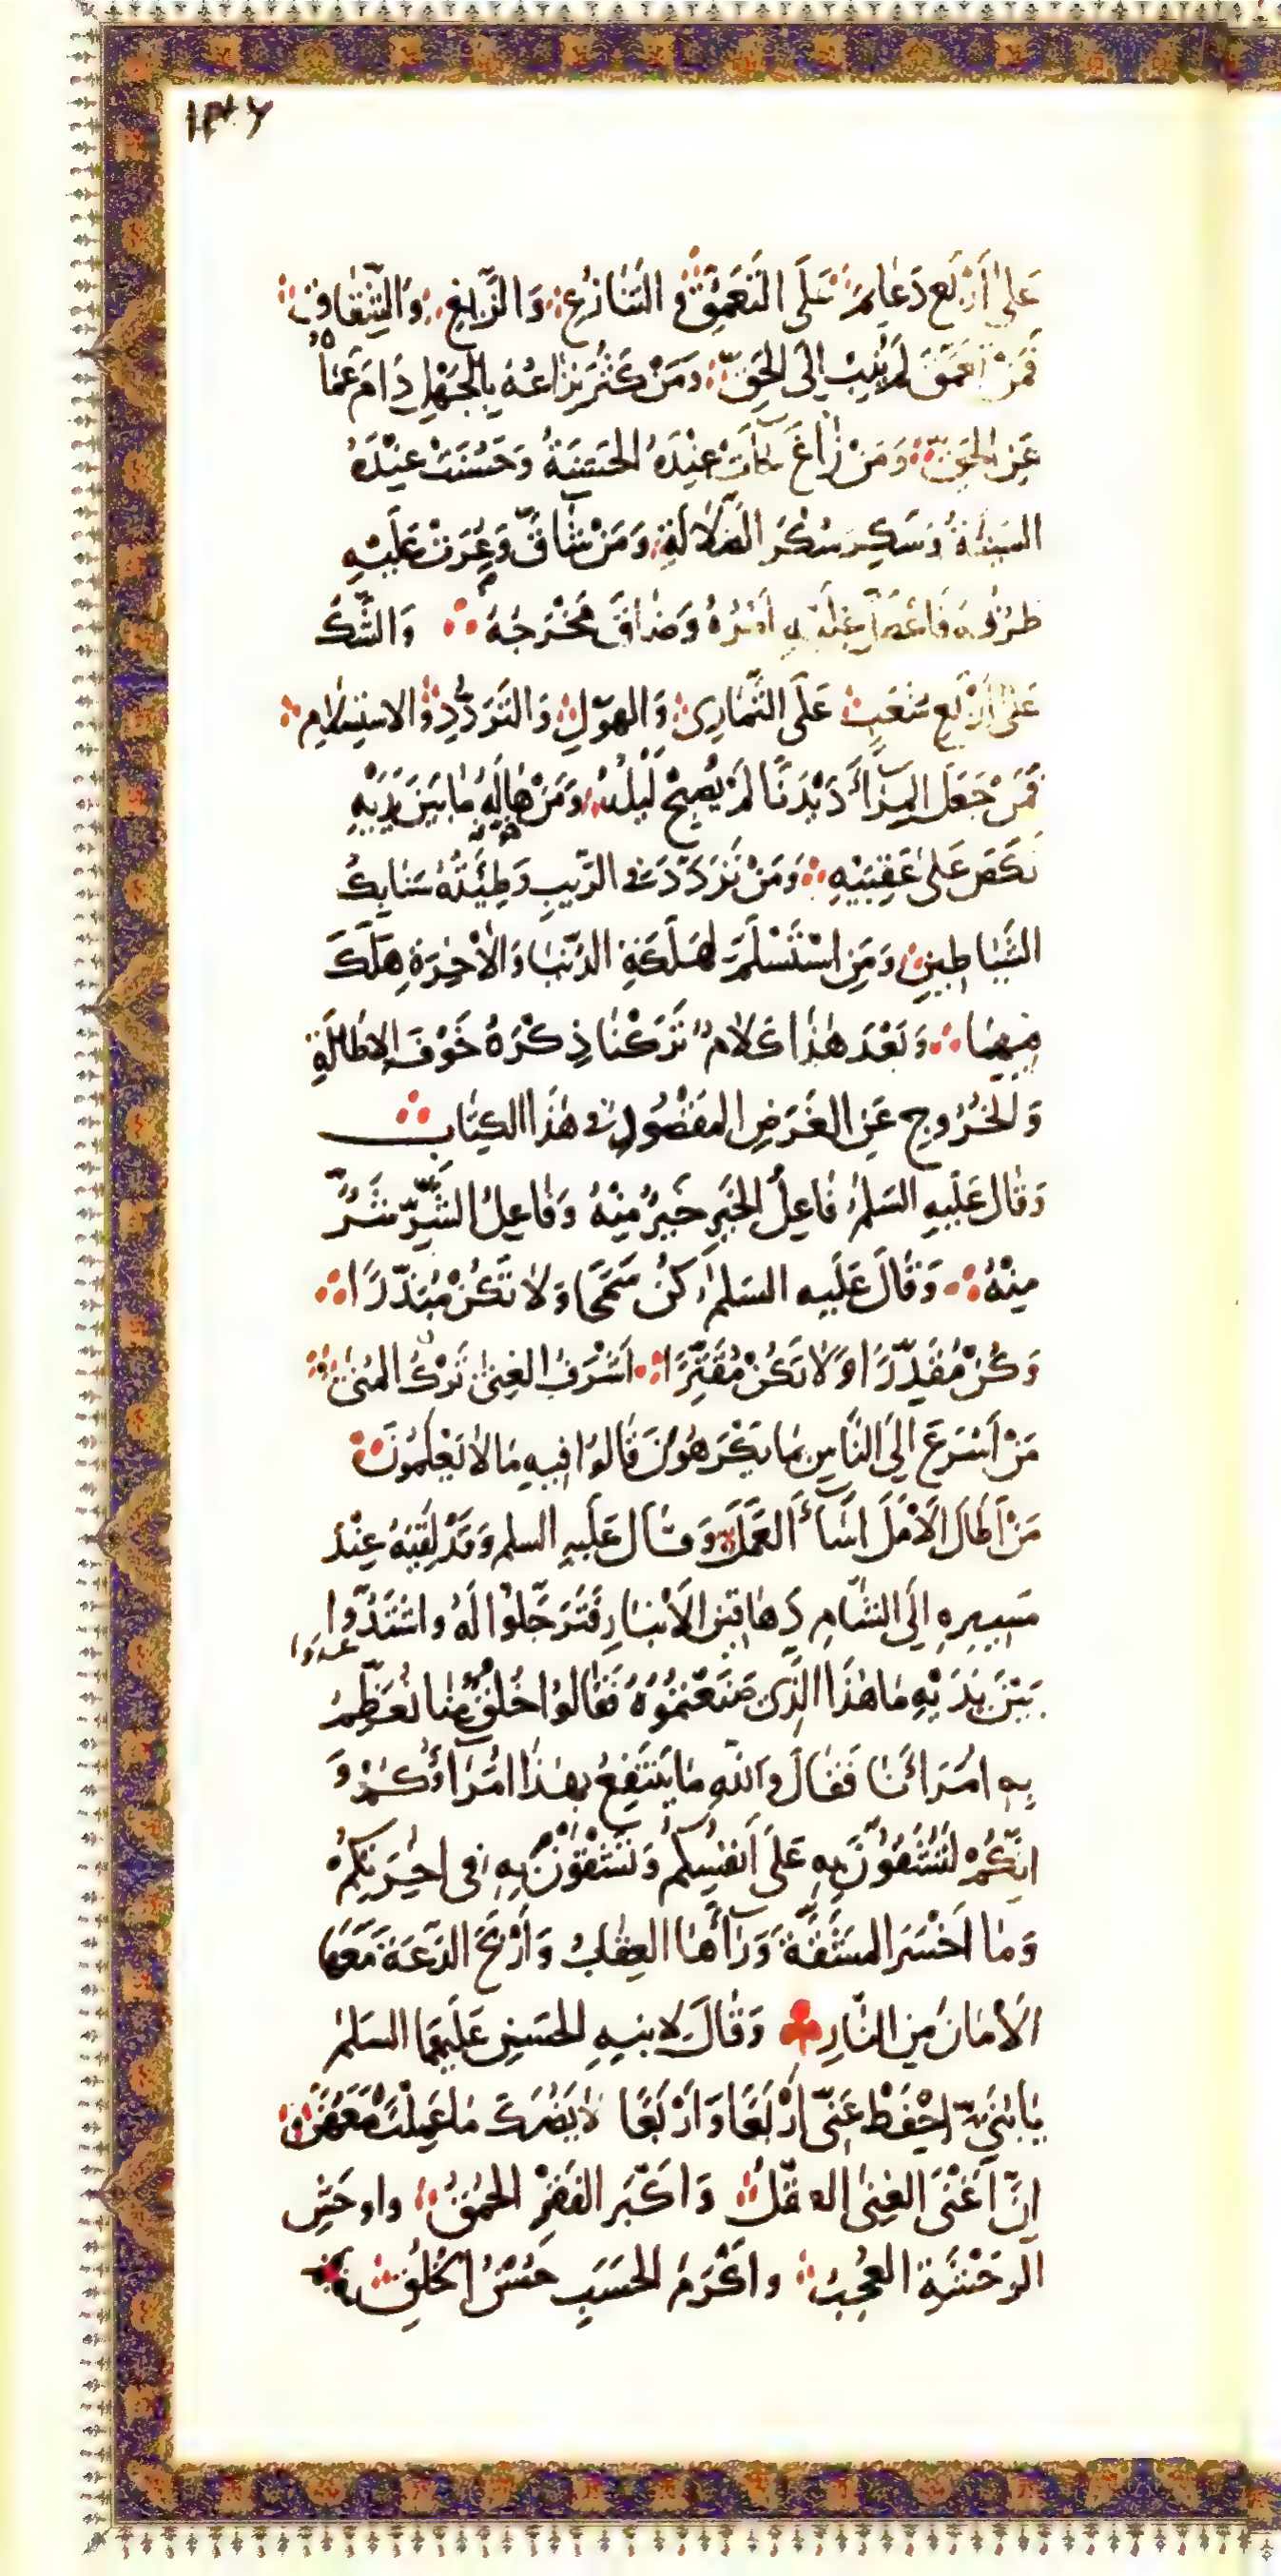 ١٣٤٦
عَلىٰ اَرْبَعِ دَعٰايِمَ عَلَى التَّعَمُّقِ وَ التَّنٰازُعِ وَ الزَّيْغِ وَ الشِّقٰاقِ
فَمَنْ تَعَمَّقَ لَمْ يُنِبْ اِلَى الحَقِّ وَمَنْ كَثُرَ نِزٰاعُهُ بِالْجَهْلِ دٰامَ عَمٰاهُ
عَنِ الْحَقِّ وَ مَنْ زٰاغَ سٰآءَتْ عِنْدَهُ الحَسَنَةُ وَحَسُنَتْ عِنْدَهُ
السَيِّئَةُ وَ سَكِرَ سُكْرَ الضَّلاٰلَةِ وَ مَنْ شٰآقَّ وَعُرَتْ عَلَيْهِ
طُرُقُهُ وَ اَعْضَلَ عَلَيْهِ اَمْرُهُ وَ ضٰاقَ مَخْرَجُهُ وَ الشَّكُ
عَلىٰ اَرْبَعِ شُعَبٍ عَلَى التَّمٰارِى وَ الهَوْلِ وَ التَرَدُّدِ وَ الاسْتِسْلاٰمِ
فَمَنْ جَعَلَ المِرٰآءَ دَيْدَنًا لَمْ يُصْبِحْ لَيْلُهُ وَ مَنْ هٰالَهُ مٰا بَيْنَ يَدَيْهِ
نَكَصَ عَلىٰ عَقِبَيْهِ وَ مَنْ تَرَدَّدَ فى الرَّيبِ وَطِئَتْهُ سَنٰابِكُ
الشَّيٰاطينِ وَ مَنِ اسْتَسْلَمَ لِهَلَكَةِ الدُّنْيٰا وَ الْاٰخِرَةِ هَلَكَ
فيهِمٰا وَ بَعْدَ هٰذٰا كَلاٰمٌ تَرَكْنٰا ذِكْرَهُ خَوْفَ الاِطٰالَةِ
وَ الْخُرُوجِ عَنِ الغَرَضِ المَقْصُودِ فى هٰذَا الكِتٰابِ
وَ قٰالَ عَلَيهِ السَلمُ فٰاعِلُ الخَيرِ خَيرٌ مِنْهُ وَ فٰاعِلُ الشَّرِّ شَرٌّ
مِنْهُ وَ قٰالَ عَلَيهِ السَلمُ كُنْ سَمَحًا وَ لاٰ تَكُنْ مُبَذِّرًا
وَ كُنْ مُقَدِّرًا وَ لاٰ تَكُنْ مُقَتِّرًا اَشْرَفُ الغِنىٰ تَرْكُ المُنىٰ
مَنْ اَسْرَعَ اِلَى النّٰاسِ بِمٰا يَكْرَهُونَ قٰالُوا فيهِ مٰا لاٰ يَعْلَمُونَ
مَنْ اَطٰالَ الاَمَلَ اَسٰآءَ العَمَلَ وَ قٰالَ عَلَيهِ السلم وَ قَدْ لَقِيَهُ عِنْدَ
مَسيرِهِ اِلَى الشّٰامِ دَهٰاقينُ الاَنْبٰارِ فَتَرَجَّلُوا لَهُ وَ اشْتَدُّوا
بَيْنَ يَدَيْهِ مٰا هٰذَا الَّذى صَنَعْتُمُوهُ فَقٰالُوا خُلُقٌ مِنّٰا نُعَظِّمُ
بِهِ اُمَرٰائَنٰا فَقٰالَ وَ اللّٰهِ مٰا يَنْتَفِعُ بِهٰذٰا اُمَرٰاؤُكُمْ وَ
اِنَّكُمْ لَتَشُقُّونَ بِهِ عَلىٰ اَنْفُسِكُمْ وَ تَشْقَوْنَ بِهِ فى اٰخِرَتِكُمْ
وَ مٰا اَخْسَرَ المَشَقَّةَ وَرٰآءَهَا العِقٰابُ وَ اَرْبَحَ الدَّعَةَ مَعَهَا
الاَمٰانُ مِنَ النّٰارِ وَ قٰالَ لِابْنِهِ الحَسَنِ عَلَيهِمَا السَلمُ
يٰا بُنَىَّ احْفَظْ عَنّى اَرْبَعًا وَ اَرْبَعًا لاٰ يَضُرُّكَ مٰا عَمِلْتَ مَعَهُنَّ
اِنَّ اَغْنَى الغِنىٰ العَقْلُ وَ اَكْبَرَ الفَقْرِ الحُمْقُ وَ اَوْحَشَ
الوَحْشَةِ العُجْبُ وَ اَكْرَمَ الحَسَبِ حُسْنُ الخُلُقِ